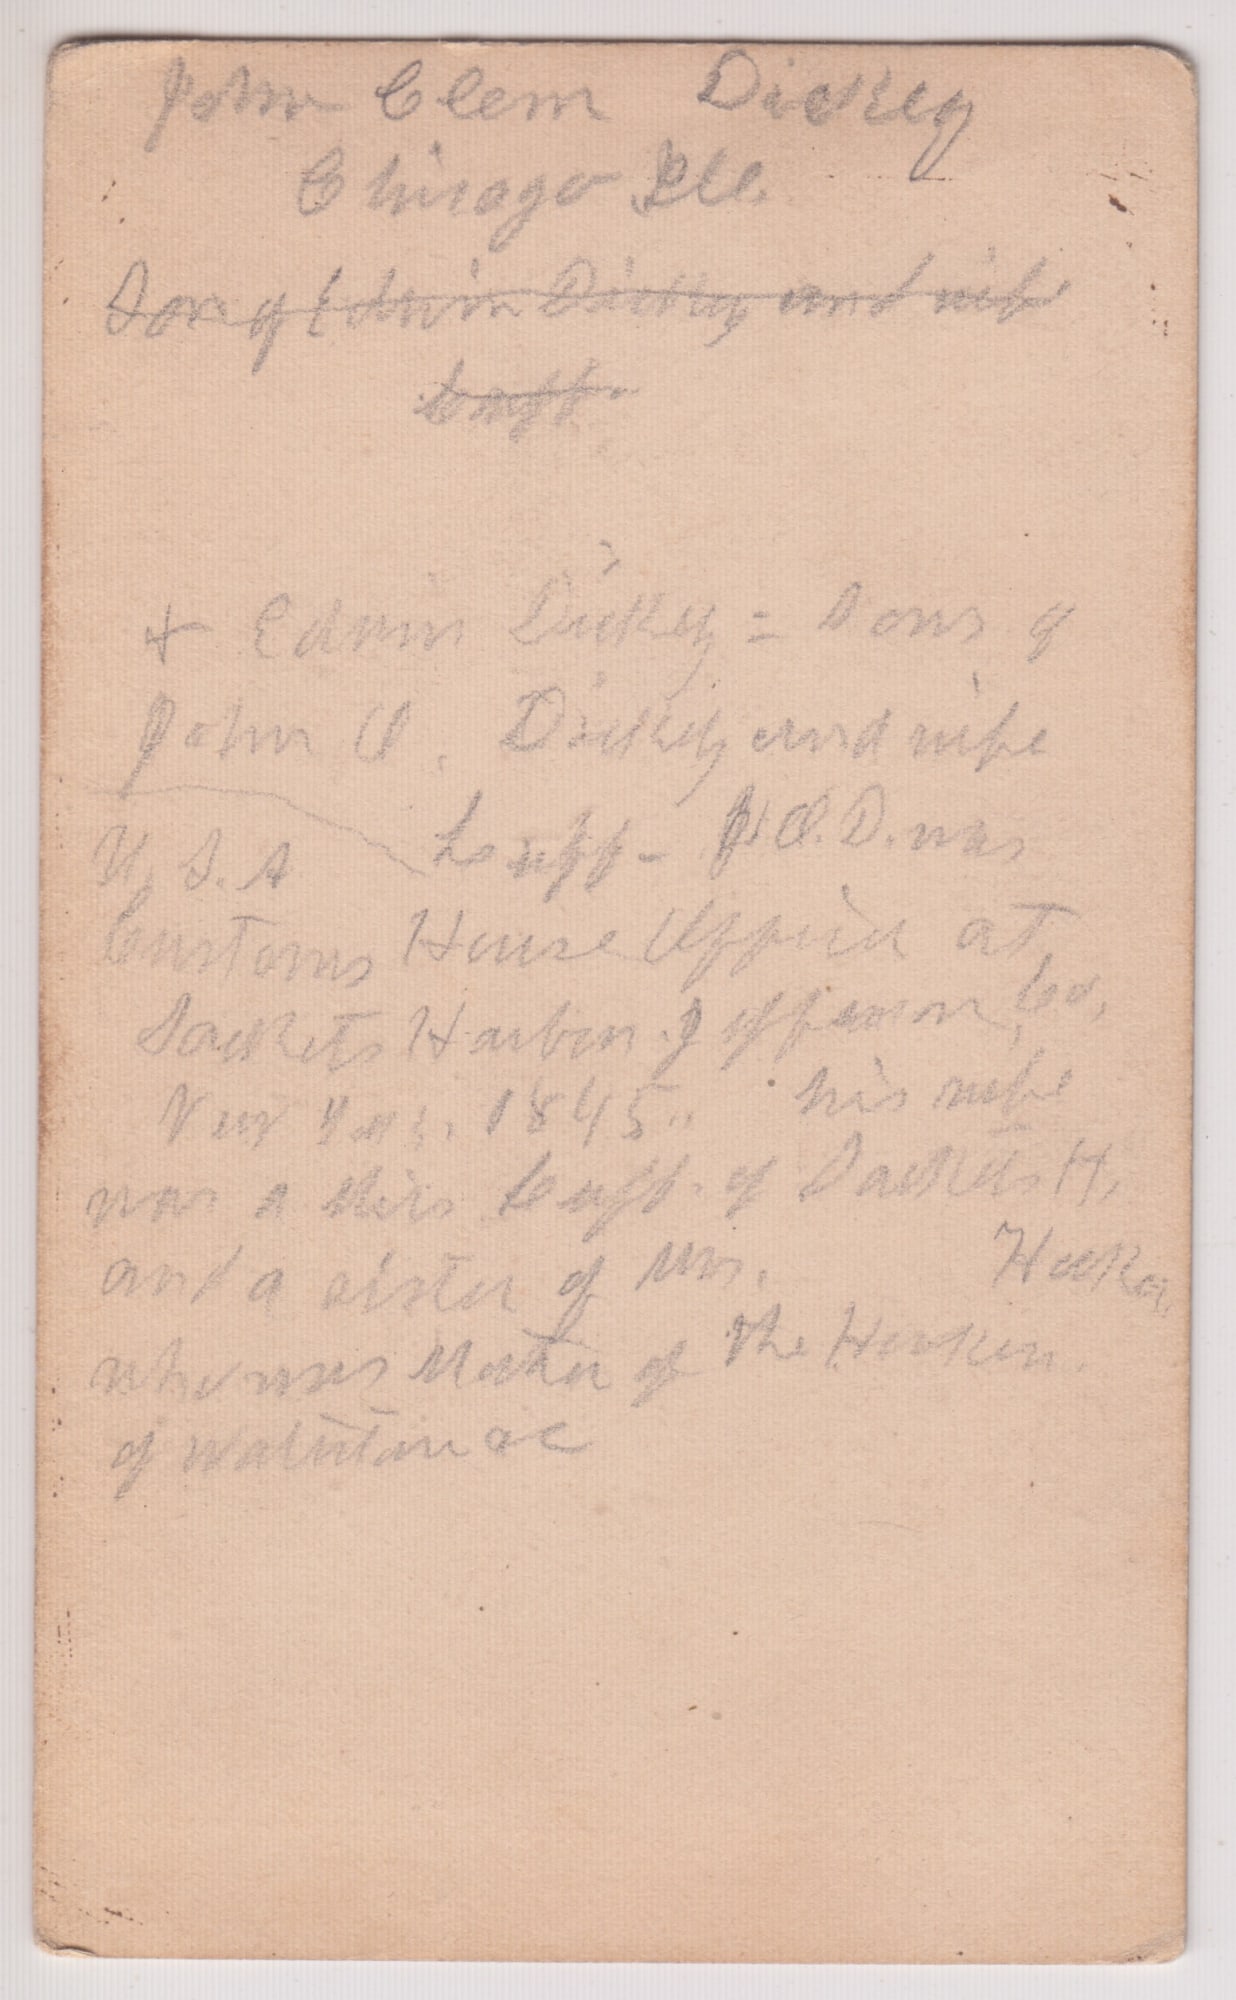 John Clem Dickey
Chicago Ill.
Son of Edwin Dickey and wife
+ Edwin Dickey = Son of
John O. Dickey and wife
U.S.A J.O.D. was
Customs House Officer at
Sackets Harbor Jefferson Co,
New York. 1845.. his wife
was a Miss of Sackets H,
and a sister of Mrs. Hooker,
who was Mother of The Hookers.
of &c